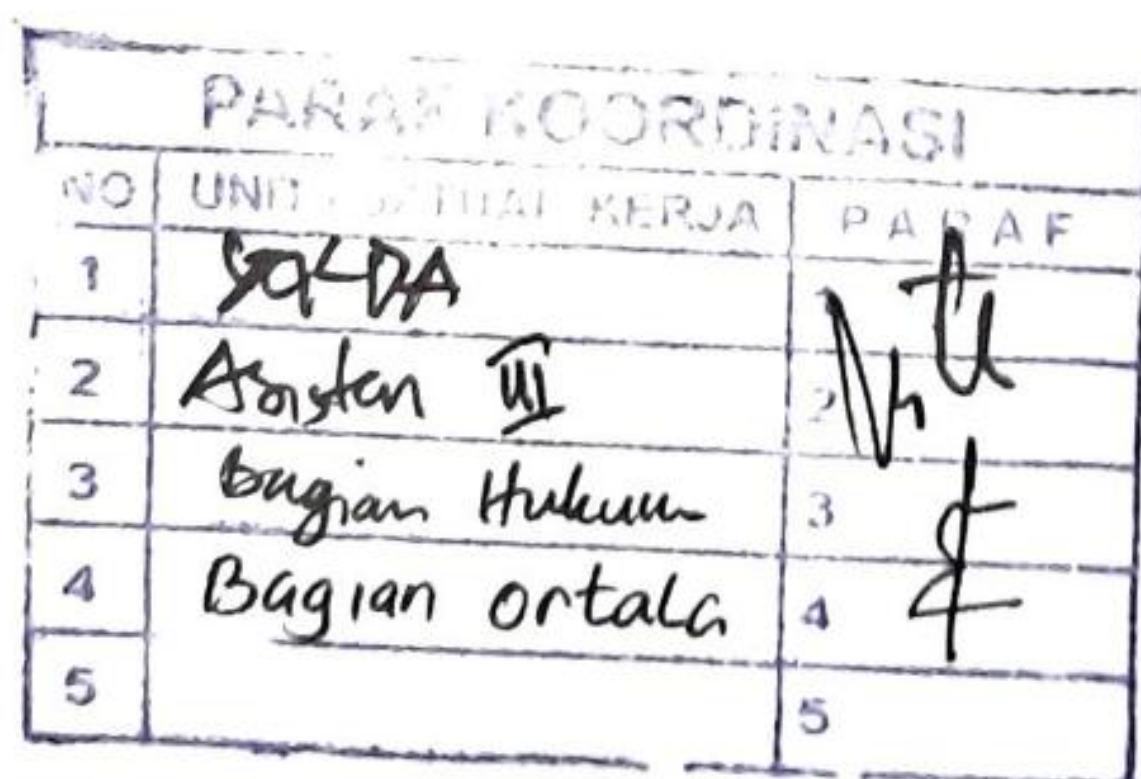 PARAF KOORDINASI
NO UNIT SATUAN KERJA PARAF
1 SEKDA 1
2 Asisten III 2
3 Bagian Hukum 3
4 Bagian ortala 4
5 5